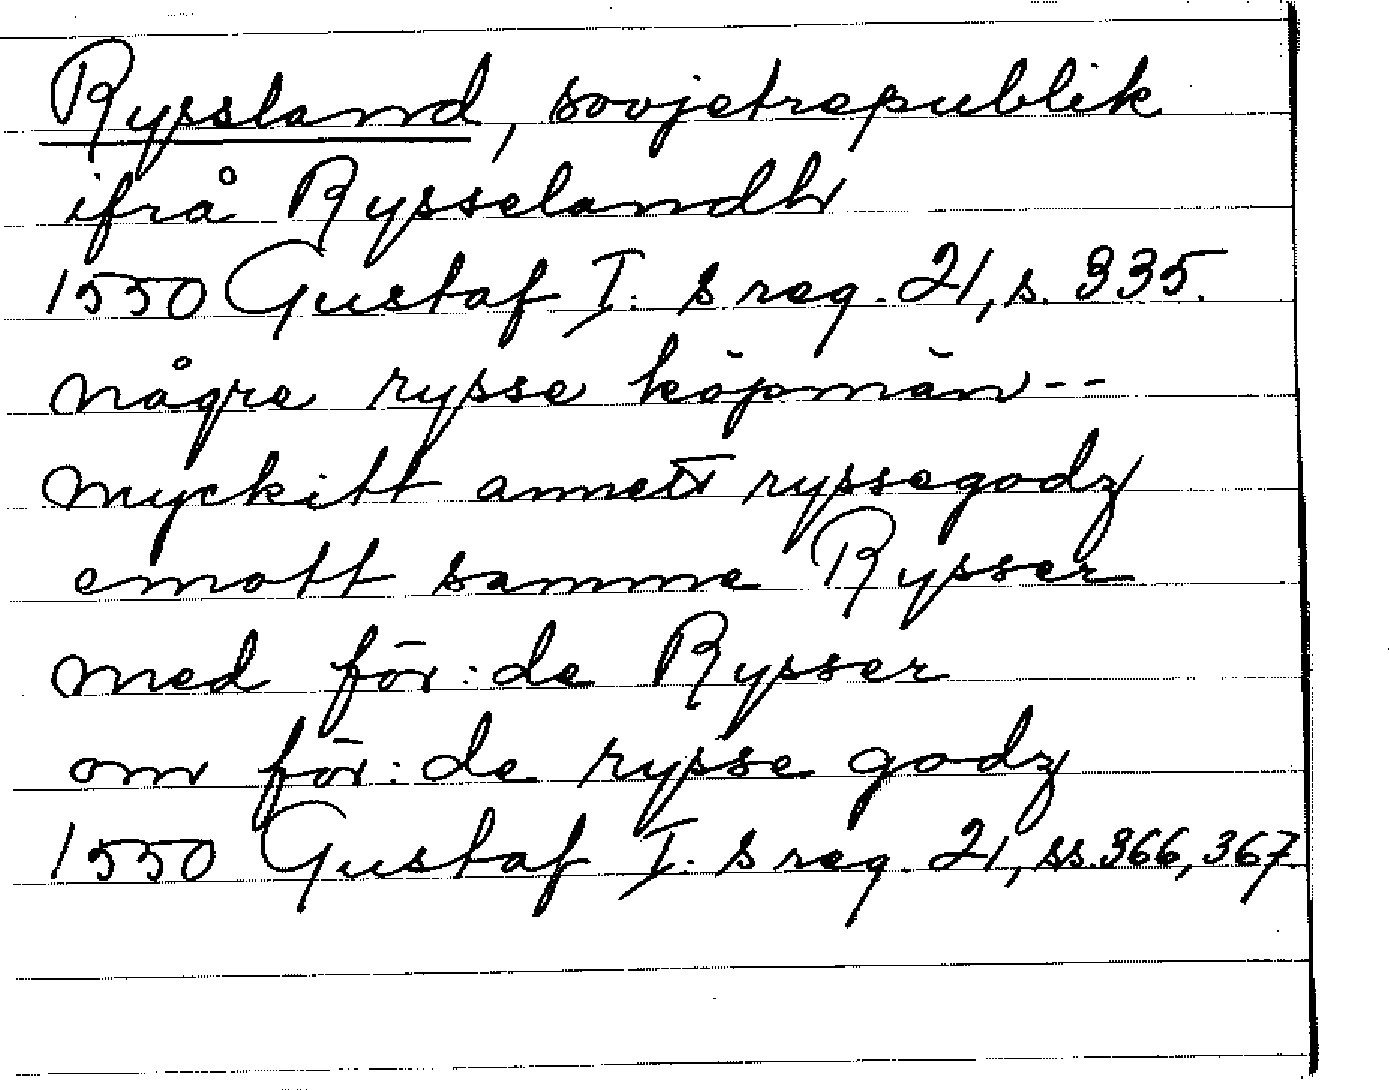 Ryssland, sovjetrepublik
ifrå Rysselandh
1550 Gustaf I: s reg. 21, s. 335.
någre rysse köpmän --
myckitt annett ryssegodz
emott samme Rysser
med för:de Rysser
om för:de rysse godz
1550 Gustaf I: s reg. 21, ss. 366, 367